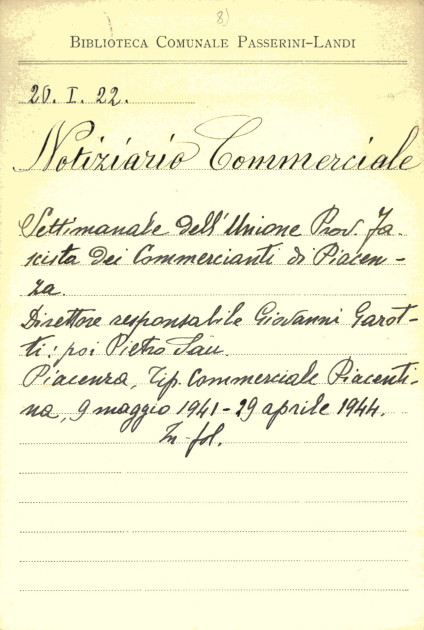 8)
BIBLIOTECA COMUNALE PASSERINI-LANDI
20. I. 22.
Notiziario Commerciale
Settimanale dell'Unione Prov. Fa-
scista dei Commercianti di Piacen-
za.
Direttore responsabile Giovanni Garot-
ti: poi Pietro Sau.
Piacenza, Tip. Commerciale Piacenti-
na, 9 maggio 1941 - 29 aprile 1944.
In fol.